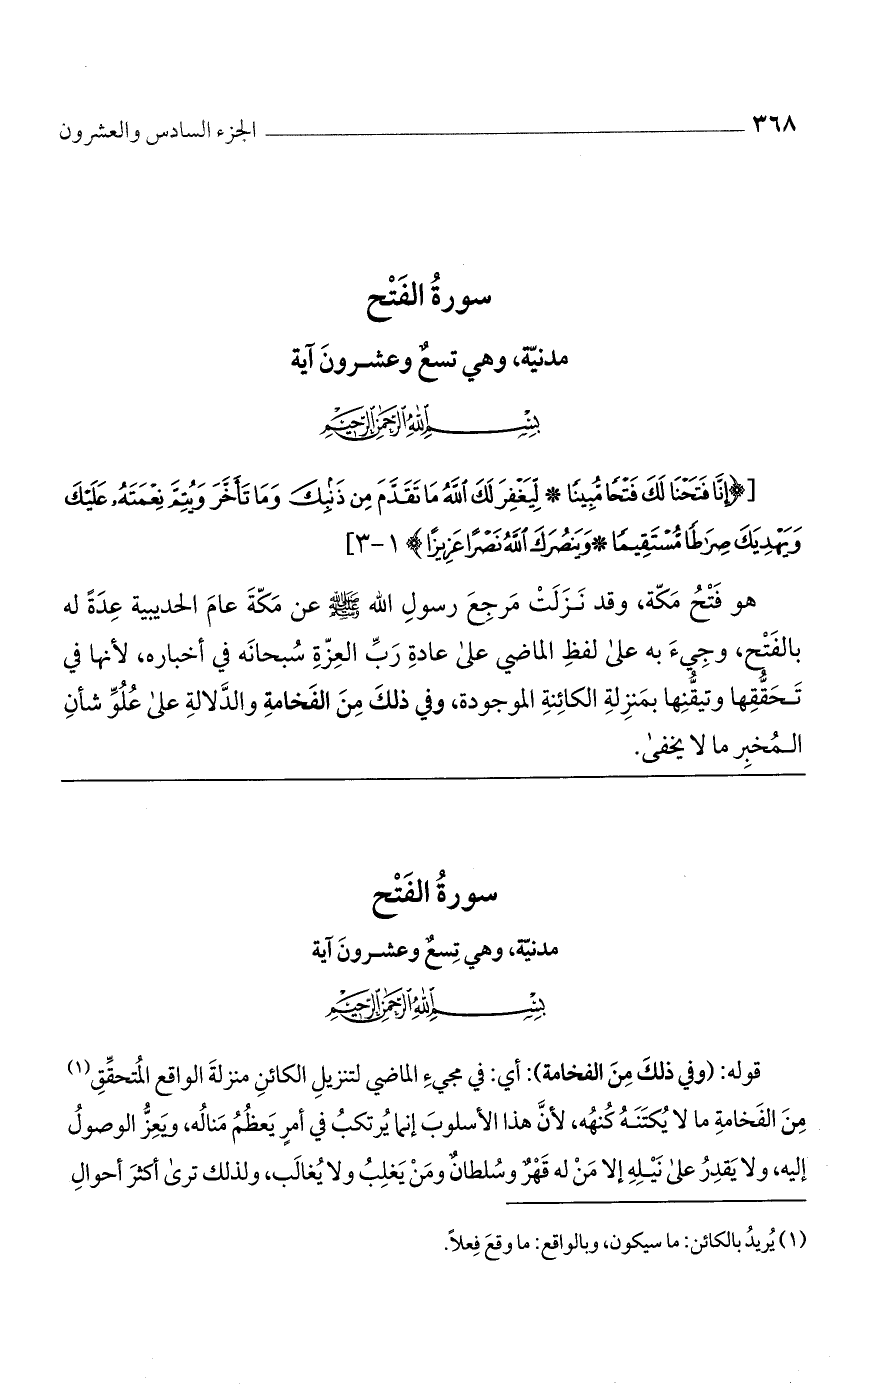 ٣٦٨ الجزء السادس والعشرون
سورةُ الفَتْح
مدنيّة، وهي تسعٌ وعشـرونَ آية
بِسْمِ اللَّهِ الرَّحْمَٰنِ الرَّحِيمِ
[﴿إِنَّا فَتَحْنَا لَكَ فَتْحًا مُّبِينًا * لِّيَغْفِرَ لَكَ ٱللَّهُ مَا تَقَدَّمَ مِن ذَنۢبِكَ وَمَا تَأَخَّرَ وَيُتِمَّ نِعْمَتَهُۥ عَلَيْكَ
وَيَهْدِيَكَ صِرَٰطًا مُّسْتَقِيمًا * وَيَنصُرَكَ ٱللَّهُ نَصْرًا عَزِيزًا﴾ ١-٣]
هو فَتْحُ مَكّة، وقد نَـزَلَتْ مَرجِعَ رسولِ الله ﷺ عن مَكّةَ عامَ الحديبية عِدَةً له
بالفَتْح، وجِيءَ به علىٰ لفظِ الماضي علىٰ عادةِ رَبِّ العِزّةِ سُبحانَه في أخباره، لأنها في
تَـحَقُّقِها وتيقُّنِها بمَنزِلةِ الكائِنةِ الموجودة، وفي ذلكَ مِنَ الفَخامةِ والدَّلالةِ علىٰ عُلُوِّ شأنِ
الـمُخبِرِ ما لا يخفىٰ.
سورةُ الفَتْح
مدنيّة، وهي تِسعٌ وعشـرونَ آية
بِسْمِ اللَّهِ الرَّحْمَٰنِ الرَّحِيمِ
قوله: (وفي ذلكَ مِنَ الفخامة): أي: في مجيءِ الماضي لتنزيلِ الكائنِ منزلةَ الواقع المُتحقِّقِ(١)
مِنَ الفَخامةِ ما لا يُكتَنَهُ كُنهُه، لأنَّ هذا الأسلوبَ إنما يُرتكبُ في أمرٍ يَعظُمُ مَنالُه، ويَعِزُّ الوصولُ
إليه، ولا يَقدِرُ علىٰ نَيْـلِهِ إلا مَنْ له قَهْرٌ وسُلطانٌ ومَنْ يَغلِبُ ولا يُغالَب، ولذلك ترىٰ أكثرَ أحوالِ
(١) يُريدُ بالكائن: ما سيكون، وبالواقع: ما وقعَ فِعلاً.